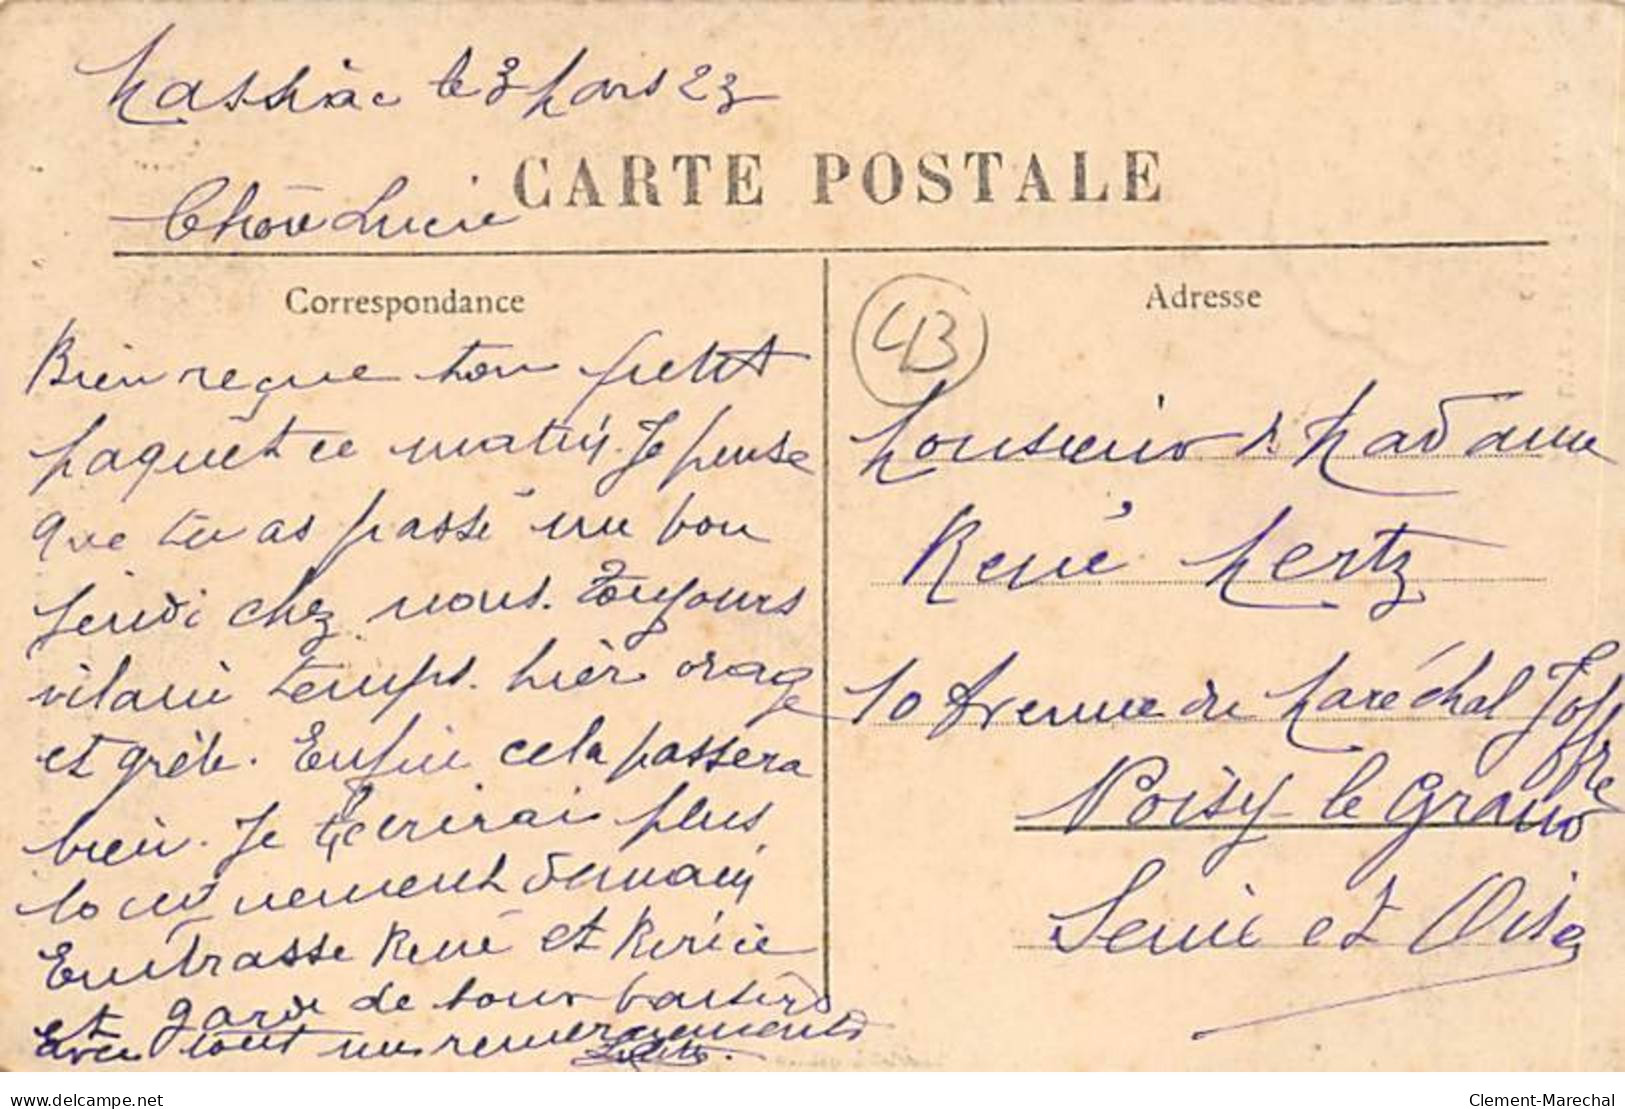 le 3 Mars 23
CARTE POSTALE
Lucie
Correspondance
Bien reçue ton petit
paquet ce matin. Je pense
que tu as passé un bon
jeudi chez nous. Toujours
vilain temps. hier orage
et grêle. Enfin cela passera
bien. Je t'écrirai plus
longuement demain
Embrasse René et
et garde de tous baisers
avec tout nos remerciements
43
Adresse
Monsieur & Madame
René Hertz
10 Avenue du Maréchal Joffre
Noisy le Grand
Seine et Oise
www.delcampe.net
Clement-Marechal